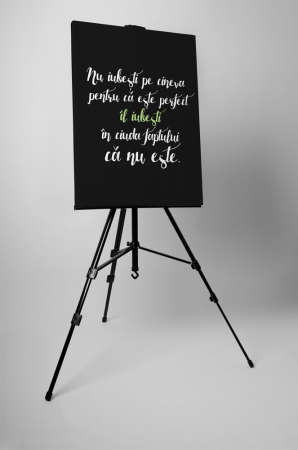 Nu iubești pe cineva
pentru că este perfect
îl iubești
în ciuda faptului
că nu este.